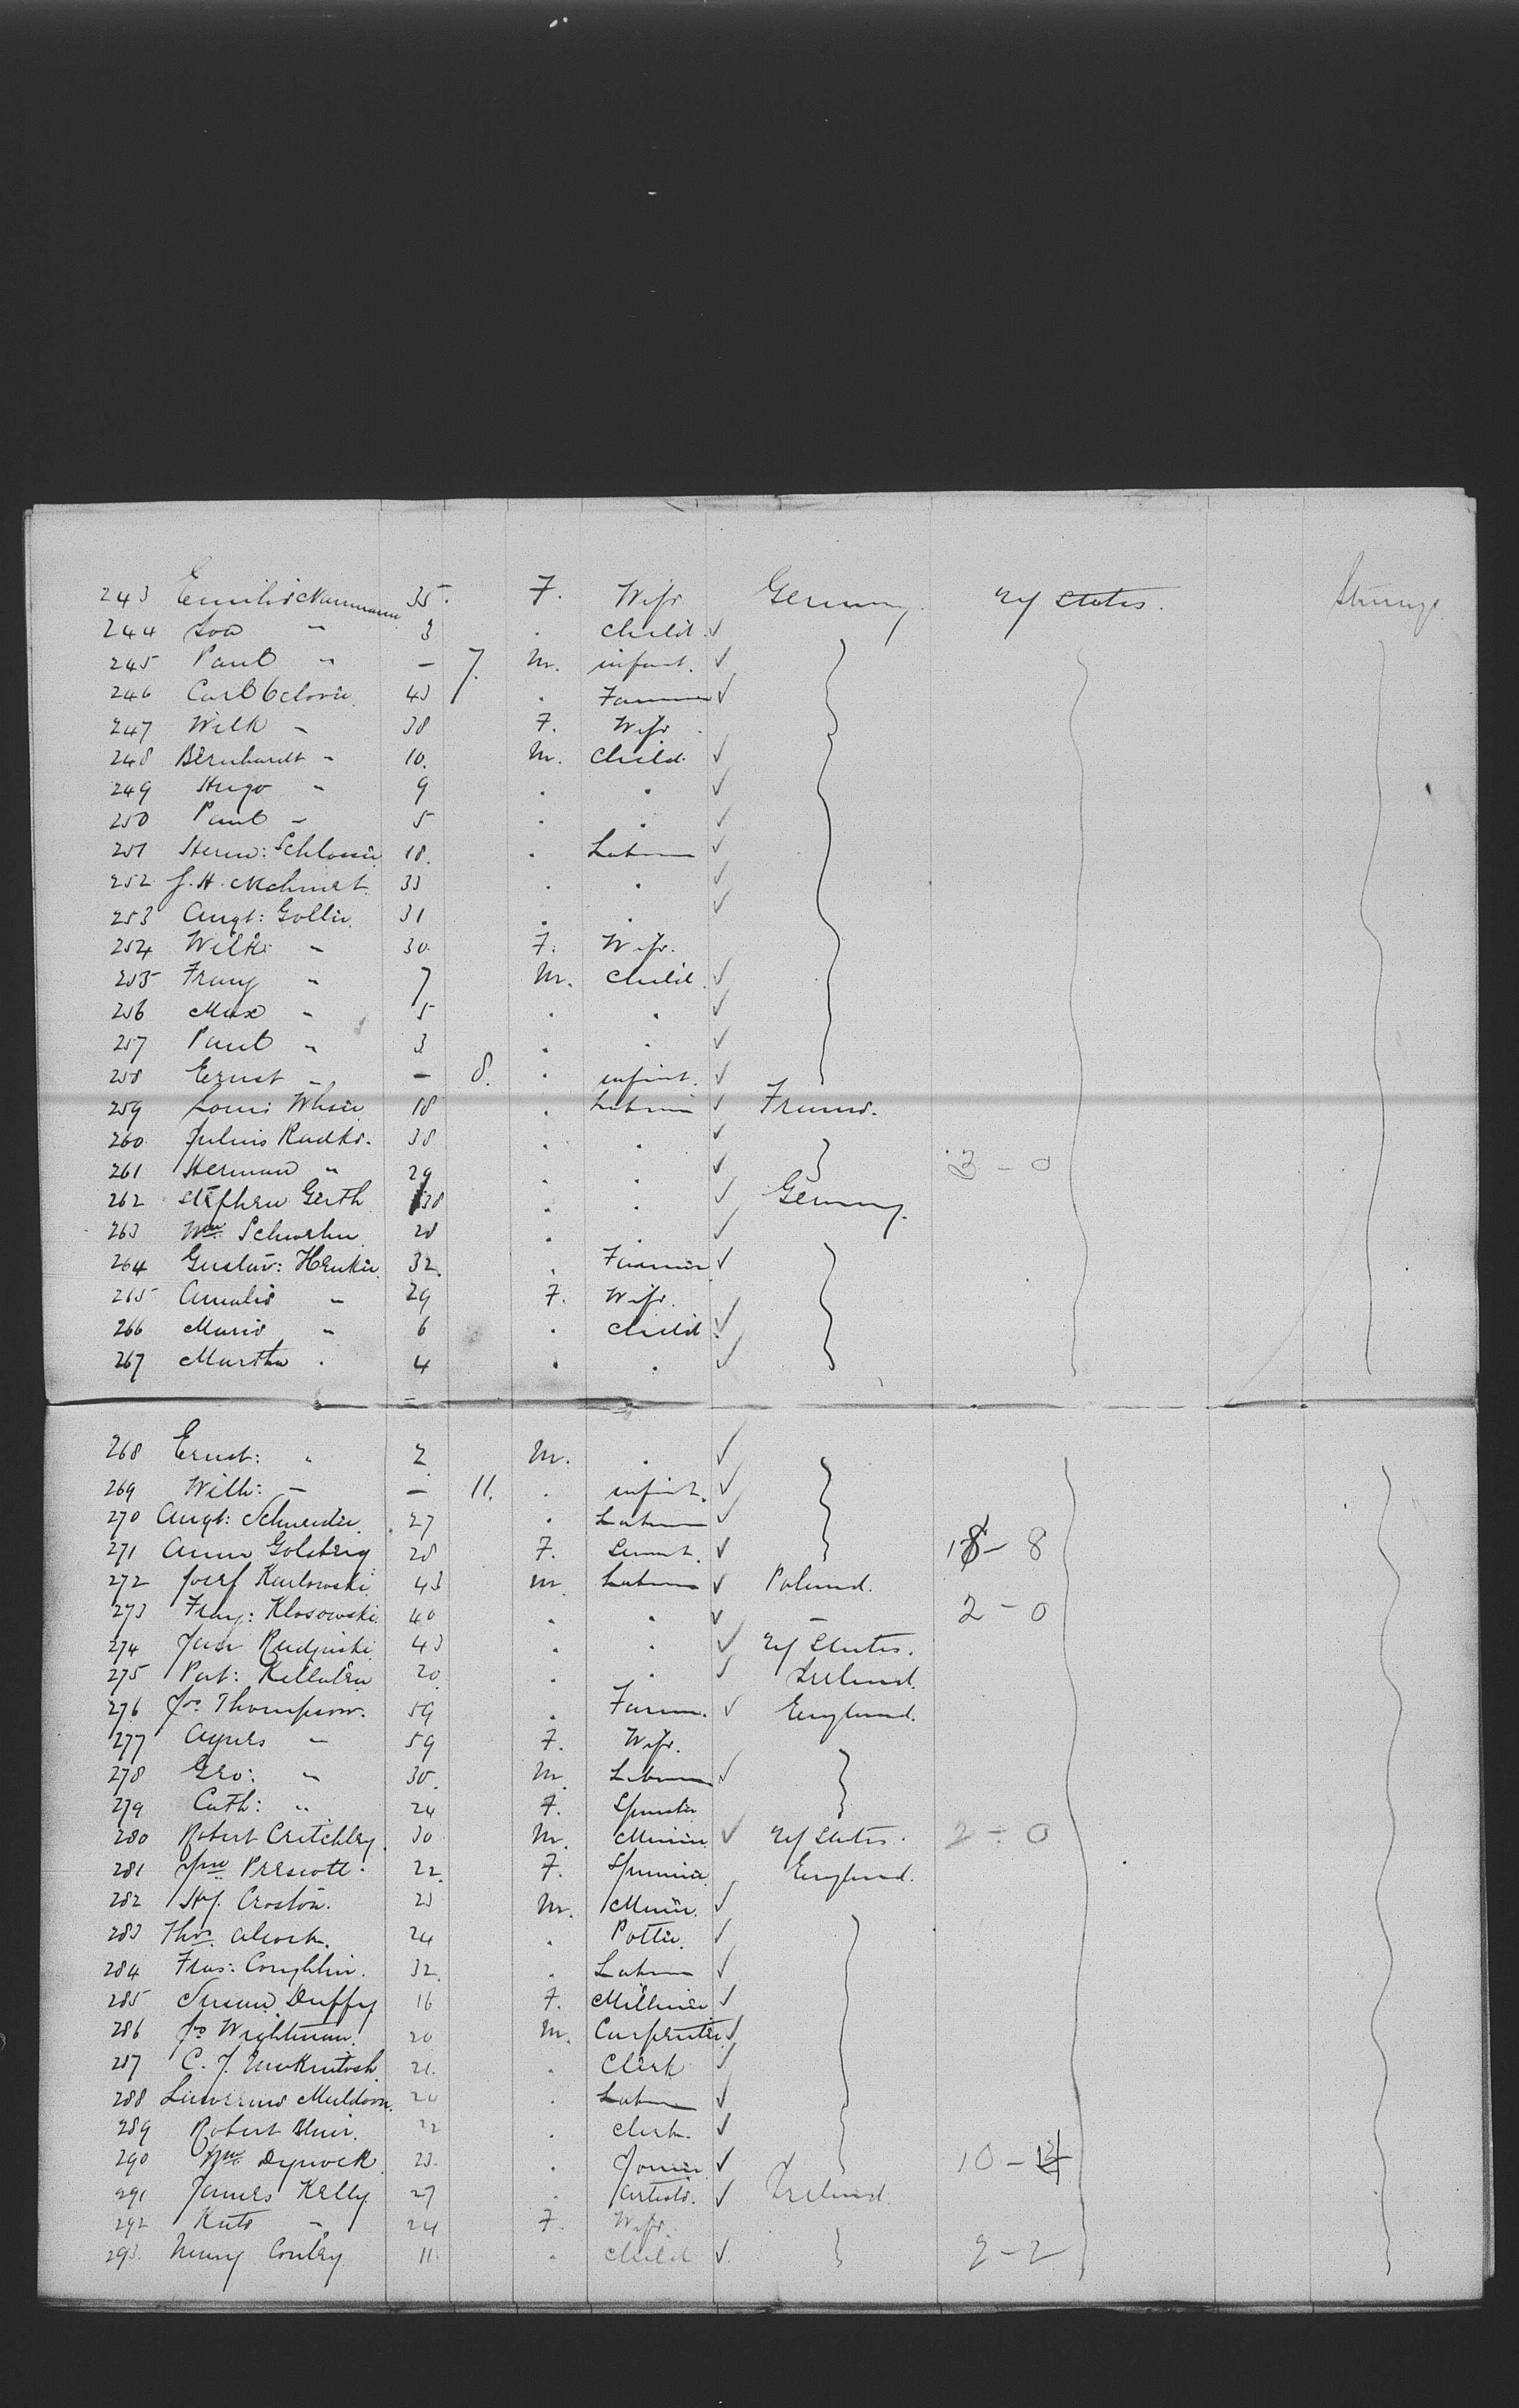 243 Emilie Naumann 35. F. Wife Germany. U States. Steerage
244 " 3 . child.
245 Paul " — 7. M. infant.
246 Carl 43 . Farmer
247 Wilh - 38 F. Wife
248 Bernhardt - 10. M. Child.
249 Hugo - 9 . .
250 Paul - 5 . .
251 Herm: 18. . Labourer
252 J. H. 33 . .
253 Augt: Goller 31 . .
254 Wilh: - 30. F. Wife.
255 Franz " 7 M. child.
256 Max - 5 . .
257 Paul " 3 . .
258 Ernst - — 8. . infant.
259 Louis 18 . Labourer France.
260 Julius Radke. 38 . .
261 Herman " 29 . . 3 - 0
262 Stephen Gerth 38 . . Germany.
263 Wm. 28 . .
264 Gustav: 32. . Farmer
265 Amalie - 29 F. Wife.
266 Marie " 6 . child.
267 Martha . 4 . .
268 Ernst: " 2 M. .
269 Wilh: - — 11. . infant.
270 Augt: Schneider. 27 . Labourer
271 Anna Golsberg 28 F. Servt. 8
272 Josef Karlowski 43 M Labourer Poland.
273 Franz: Klosowski 40 . . - 2 - 0
274 Rudzinski 43 . . U States.
275 Pat: 20. . . Ireland.
276 Jno. Thompson. 59 . Farmer. England.
277 Agnes - 59 F. Wife.
278 Geo: " 30. M. Labourer
279 Cath: " 24 F. Spinster
280 Robert Critchley 30 M. Miner U States. 2 - 0
281 Prescott. 22. F. Spinster England.
282 Hy. Croston. 23 M. Miner.
283 Thos. Alcock. 24 . Potter.
284 Fras: Coughlin. 32. . Labourer
285 Susan Duffy 16 F. Milliner
286 Jno Wrightman. 20 M. Carpenter
287 C. J. 21. . Clerk
288 Lawrence Muldoon. 20 . Labourer
289 Robert 22 . clerk.
290 Wm. 23. . Joiner 10 -
291 James Kelly 27 . Artist. Ireland.
292 Kate - 24 F. Wife.
293. Mary Conley 11. . child 2 - 2